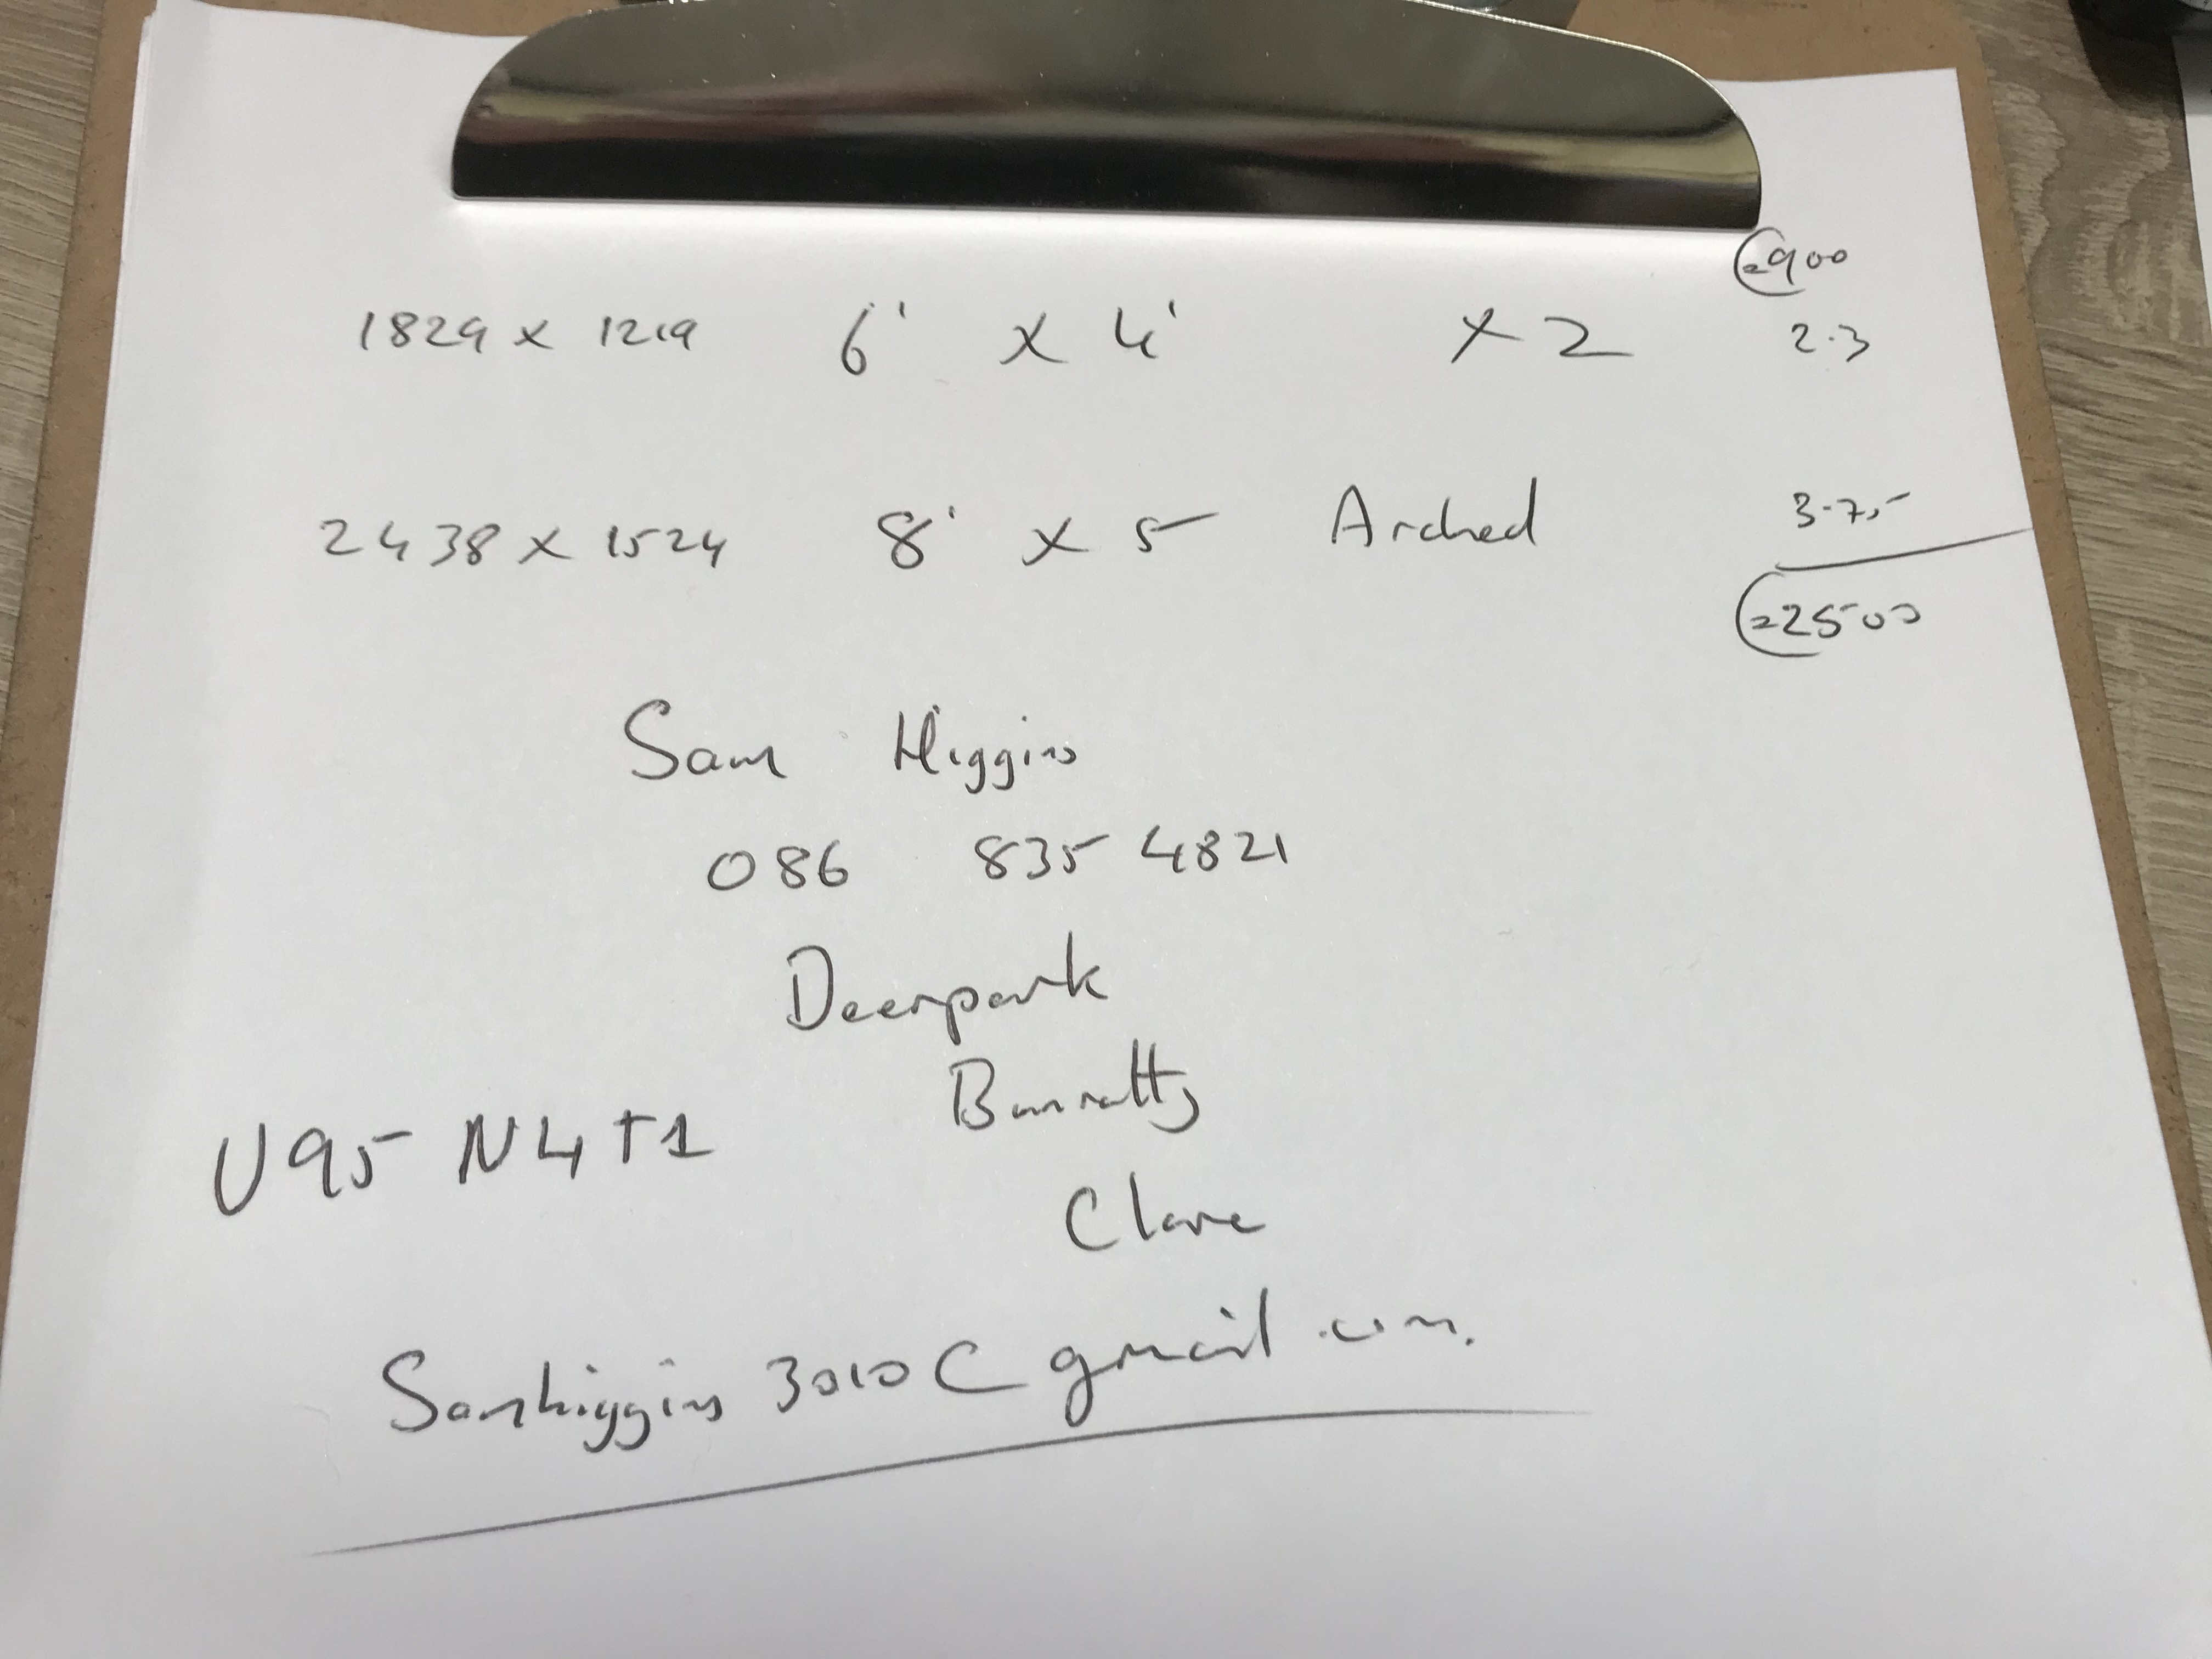 =900
1829 x 1219 6' x 4' x 2 2.3
2438 x 1524 8' x 5 Arched 3.75
=2500
Sam Higgins
086 835 4821
Deerpark
Bunratty
U95 N4T1
Clare
Samhiggins 3010@gmail.com.